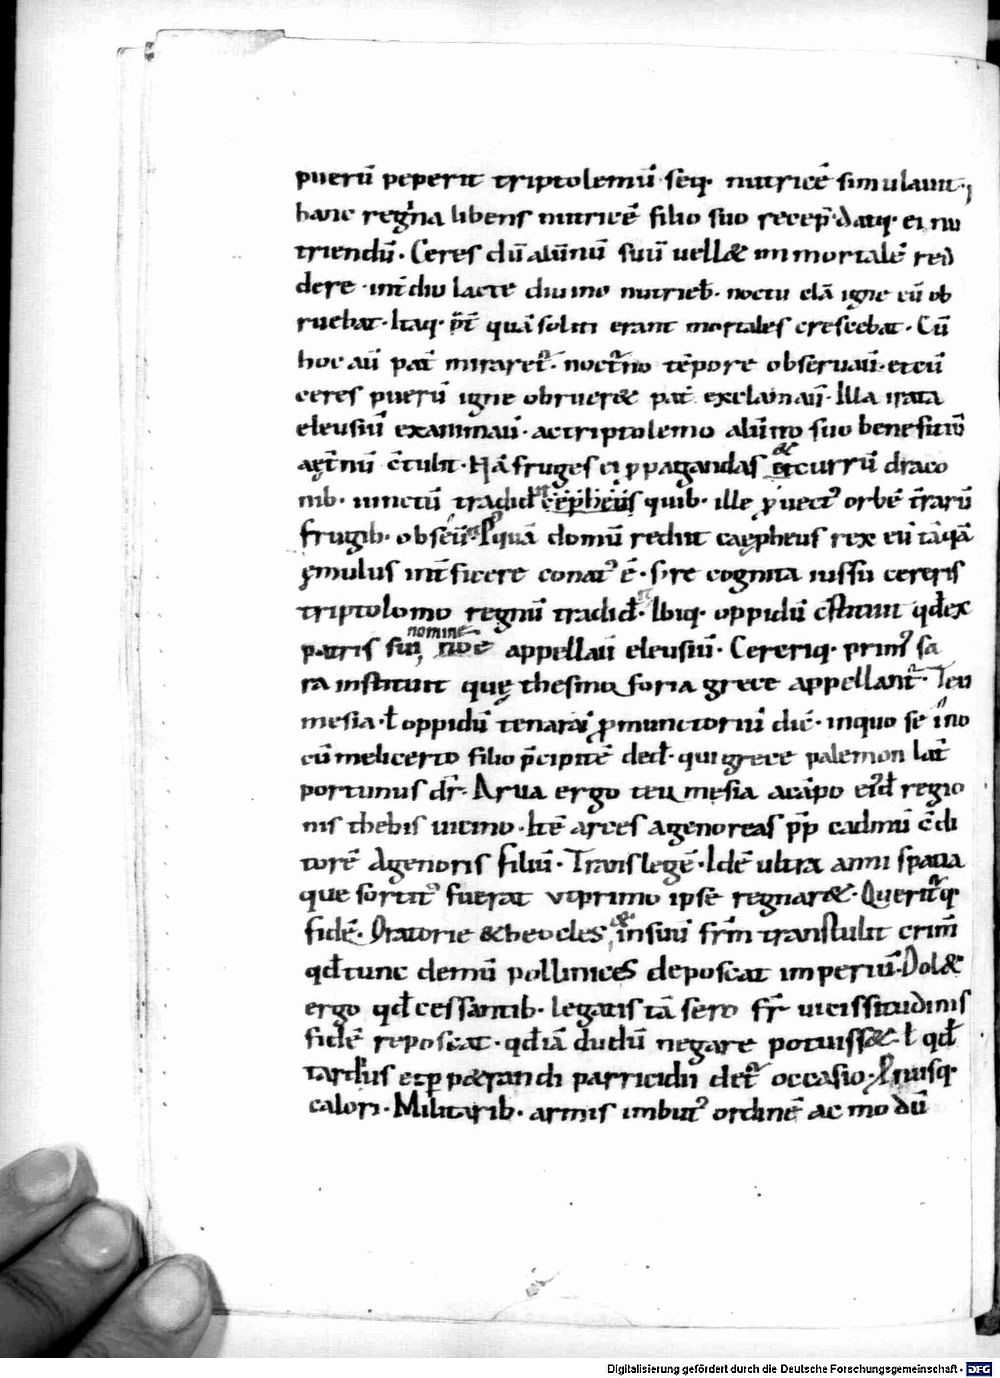 puerū peperit triptolemū seq· nutricē simulauit·
hanc regina libens nutricē filio suo recep̄·datq· ei nu
triendū· Ceres cū alūnū suū uell& immortalē red
dere ·int̄diu lacte diuino nutrieb̄· noctu clā igne eū ob
ruebat·Itaq· p̄t̄ quā soliti erant mortales crescebat· Cū
hoc aū pat̄ miraret᷑· noct᷑no tēpore obseruaū·etcū
ceres puerū igne obruer& pat̄ exclamaū· Illa irata
eleusiū examinaū· actriptolemo alūno suo benefitiū
aęt̄nū c̄tulit· Nā fruges ei ppagandas etcurrū draco
nib· iunctū tradid̄ cepheus quib· ille puect᷑ orbē t̄rarū
frugib· obseū· Pquā domū rediit caępheus rex eū tāqā
ęmulus int̄ficere conat᷑ ē· s;re cognita iussu cereris
triptolomo regnū tradid̄· Ibiq· oppidū c̄stituit qd̄ex
nomine
patris sui noē appellaū eleusiū· Cereriq· prim᷑ sa
ra instituit quę thesmo foria grece appellant᷑· Teu
mesia·ł oppidū tenarai pmunctoriū dic̄· inquo se ino
cū melicerto filio p̄cipitē ded̄· qui grece palemon lat̄
portunus dr̄· Arua ergo teu mesia acāpo ei᷑d̄ regio
nis thebis uicino·Itē arces agenoreas pp̄ cadmū c̄di
torē Agenoris filiū· Translegē·Idē ultra anni spatia
que sortit᷑ fuerat vtprimo ipse regnar&·Querit᷑q·
fidē· Oratorie &heocles insuū frm̄ transtulit crim̄
qd̄tunc demū pollinices deposcat imperiū·Dol&
ergo qd̄cessantib· legatis tā sero fr̄ uicissitudinis
fidē reposcat· qd̄iā dudū negare potuiss&·ł qd̄
tardius etp p&randi parricidii det᷑ occasio·Priusq·
calori·Militarib· armis imbut᷑ ordinē ac modū
Digitalisierung gefördert durch die Deutsche Forschungsgemeinschaft - DFG